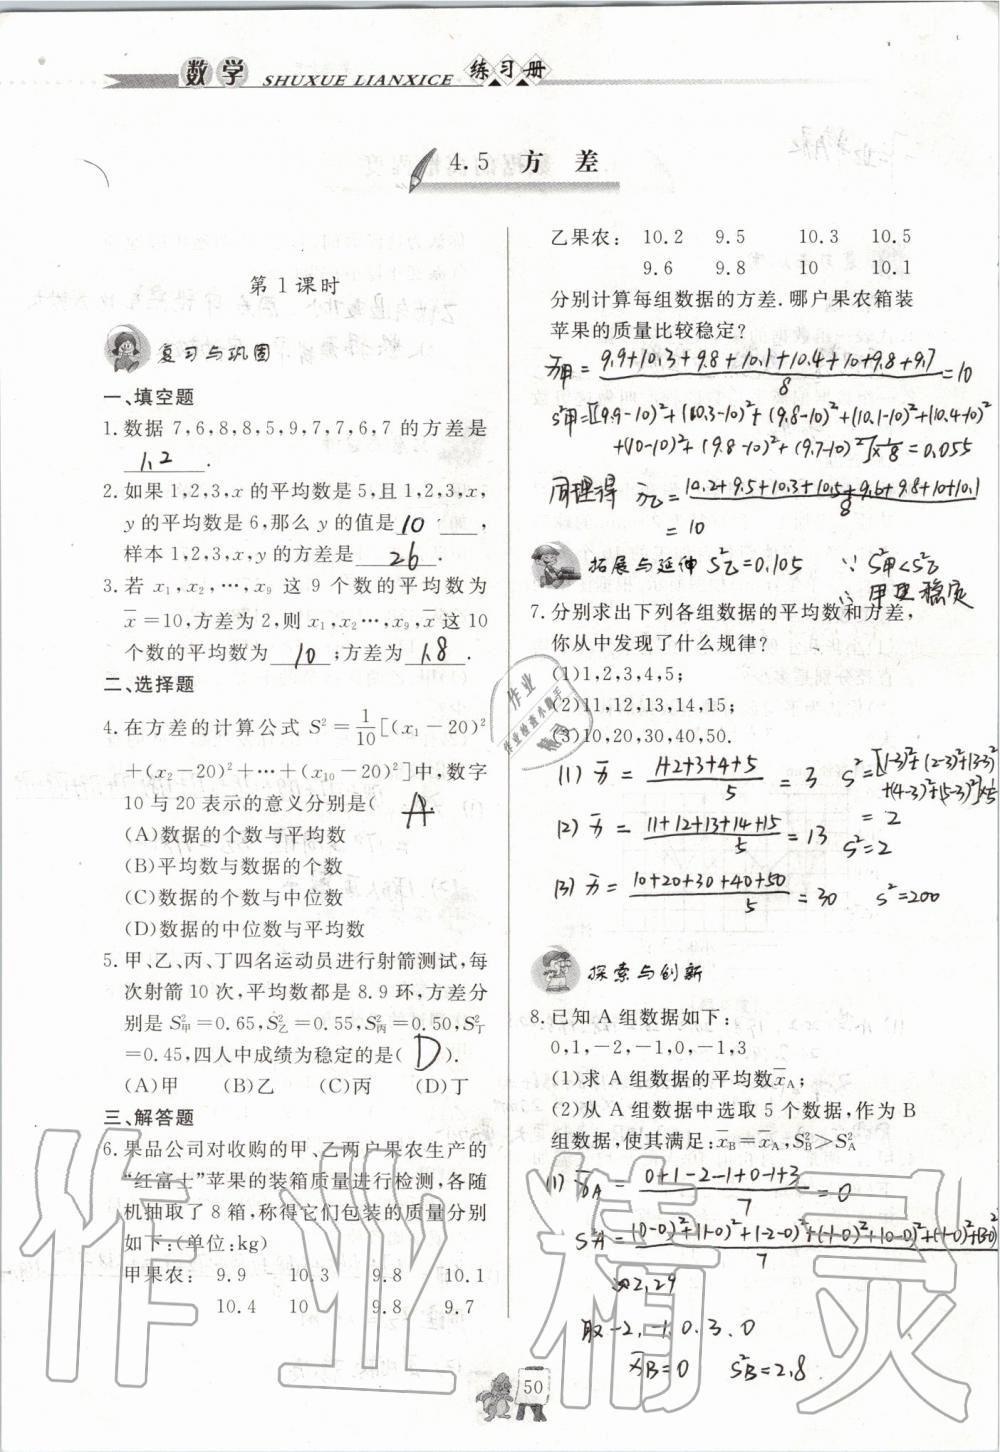 数学
SHUXUE LIANXICE
练习册
4.5 方差
第1课时
复习与巩固
一、填空题
1. 数据 7,6,8,8,5,9,7,7,6,7 的方差是
1.2.
2. 如果 1,2,3,x 的平均数是 5,且 1,2,3,x,
y 的平均数是 6,那么 y 的值是 10 ,
样本 1,2,3,x,y 的方差是 26.
3. 若 x₁,x₂,…,x₉ 这 9 个数的平均数为
x̄=10,方差为 2,则 x₁,x₂…,x₉,x̄ 这 10
个数的平均数为 10 ;方差为 1.8 .
二、选择题
4. 在方差的计算公式 S²=1/10[(x₁-20)²
+(x₂-20)²+…+(x₁₀-20)²]中,数字
10 与 20 表示的意义分别是( A
(A)数据的个数与平均数
(B)平均数与数据的个数
(C)数据的个数与中位数
(D)数据的中位数与平均数
5. 甲、乙、丙、丁四名运动员进行射箭测试,每
次射箭 10 次,平均数都是 8.9 环,方差分
别是 S²甲=0.65,S²乙=0.55,S²丙=0.50,S²丁
=0.45,四人中成绩为稳定的是( D ).
(A)甲 (B)乙 (C)丙 (D)丁
三、解答题
6. 果品公司对收购的甲、乙两户果农生产的
“红富士”苹果的装箱质量进行检测,各随
机抽取了 8 箱,称得它们包装的质量分别
如下:(单位:kg)
甲果农: 9.9 10.3 9.8 10.1
10.4 10 9.8 9.7
乙果农: 10.2 9.5 10.3 10.5
9.6 9.8 10 10.1
分别计算每组数据的方差.哪户果农箱装
苹果的质量比较稳定?
x̄甲=(9.9+10.3+9.8+10.1+10.4+10+9.8+9.7)/8=10
S²甲=[(9.9-10)²+(10.3-10)²+(9.8-10)²+(10.1-10)²+(10.4-10)²
+(10-10)²+(9.8-10)²+(9.7-10)²]×1/8=0.055
同理得 x̄乙=(10.2+9.5+10.3+10.5+9.6+9.8+10+10.1)/8
=10
拓展与延伸 S²乙=0.105 ∵S²甲<S²乙
∴甲更稳定
7. 分别求出下列各组数据的平均数和方差,
你从中发现了什么规律?
(1)1,2,3,4,5;
(2)11,12,13,14,15;
(3)10,20,30,40,50.
(1) x̄=(1+2+3+4+5)/5=3 S²=[(1-3)²+(2-3)²+(3-3)²
+(4-3)²+(5-3)²]×1/5
=2
(2) x̄=(11+12+13+14+15)/5=13 S²=2
(3) x̄=(10+20+30+40+50)/5=30 S²=200
探索与创新
8. 已知 A 组数据如下:
0,1,-2,-1,0,-1,3
(1)求 A 组数据的平均数x̄A;
(2)从 A 组数据中选取 5 个数据,作为 B
组数据,使其满足:x̄B=x̄A,S²B>S²A
(1) x̄A=(0+1-2-1+0-1+3)/7=0
S²A=((0-0)²+(1-0)²+(-2-0)²+(-1-0)²+(0-0)²+(-1-0)²+(3-0)²)/7
≈2.29
取-2,-1,0,3,0
x̄B=0 S²B=2.8
50
作业精灵
作业
作业检查小助手
精灵